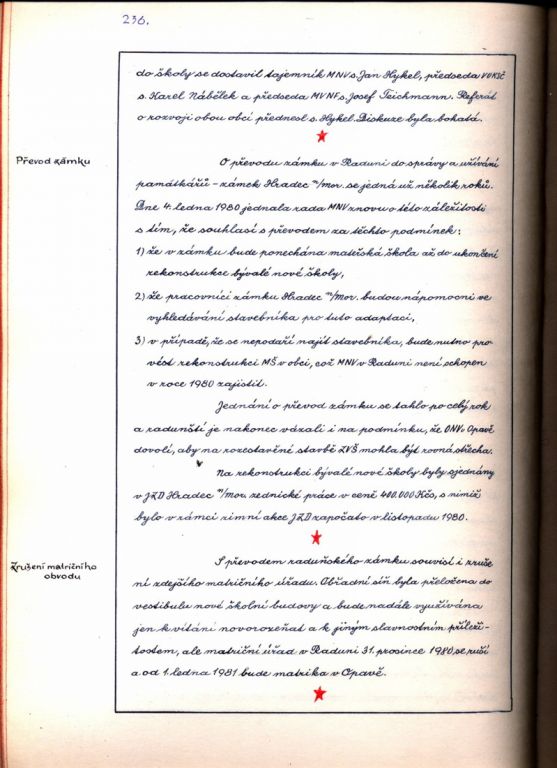 236.
do školy se dostavil tajemník MNV s. Jan Hykel, předseda VOKSČ
s. Karel Nábělek a předseda MVNF s. Josef Teichmann. Referát
o rozvoji obou obcí přednesl s. Hykel. Diskuze byla bohatá.
Převod zámku
O převodu zámku v Raduni do správy a užívání
památkářů - zámek Hradec n/mor. se jedná už několik roků.
Dne 4. ledna 1980 jednala rada MNV znovu o této záležitosti
s tím, že souhlasí s převodem za těchto podmínek:
1) že v zámku bude ponechána mateřská škola až do ukončení
rekonstrukce bývalé nové školy,
2) že pracovníci zámku Hradec n/Mor. budou nápomocni ve
vyhledávání stavebníka pro tuto adaptaci,
3) v případě, že se nepodaří najít stavebníka, bude nutno pro
vést rekonstrukci MŠ v obci, což MNV v Raduni není schopen
v roce 1980 zajistit.
Jednání o převod zámku se táhlo po celý rok
a raduňští je nakonec vázali i na podmínku, že ONV v Opavě
dovolí, aby na rozestavěné stavbě ZVŠ mohla být rovná střecha.
Na rekonstrukci bývalé nové školy byly sjednány
v JZD Hradec n/Mor. zednické práce v ceně 400.000 Kčs, s nimiž
bylo v rámci zimní akce JZD započato v listopadu 1980.
Zrušení matričního
obvodu
S převodem raduňského zámku souvisí i zruše
ní zdejšího matričního úřadu. Obřadní síň byla přeložena do
vestibulu nové školní budovy a bude nadále využívána
jen k vítání novorozeňat a k jiným slavnostním příleži-
tostem, ale matriční úřad v Raduni 31. prosince 1980 se ruší
a od 1. ledna 1981 bude matrika v Opavě.